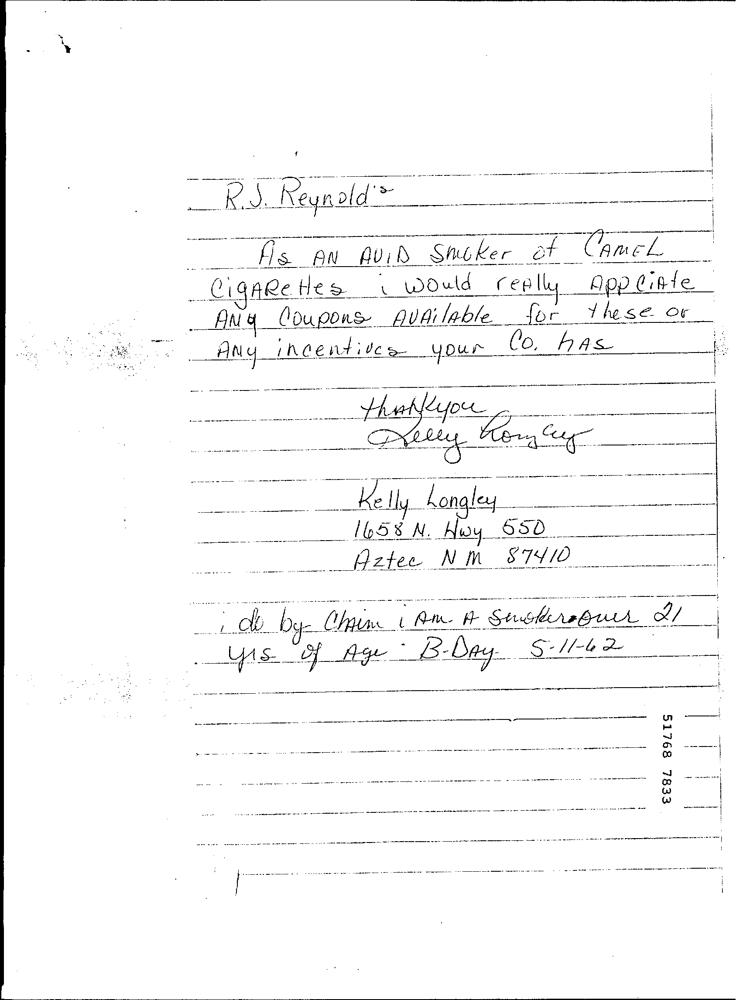 R.J. Reynold's
As AN AVID Smoker of CAMEL
CigARettes i would reAlly AppCiAte
ANy Coupons AVAilAble for these or
ANy incentives your Co. hAs
thankyou
Kelly Longley
Kelly Longley
1658 N. Hwy 550
Aztec NM 87410
i do by Claim i Am A Smoker over 21
yrs of Age B-DAy 5-11-62
51768 7833